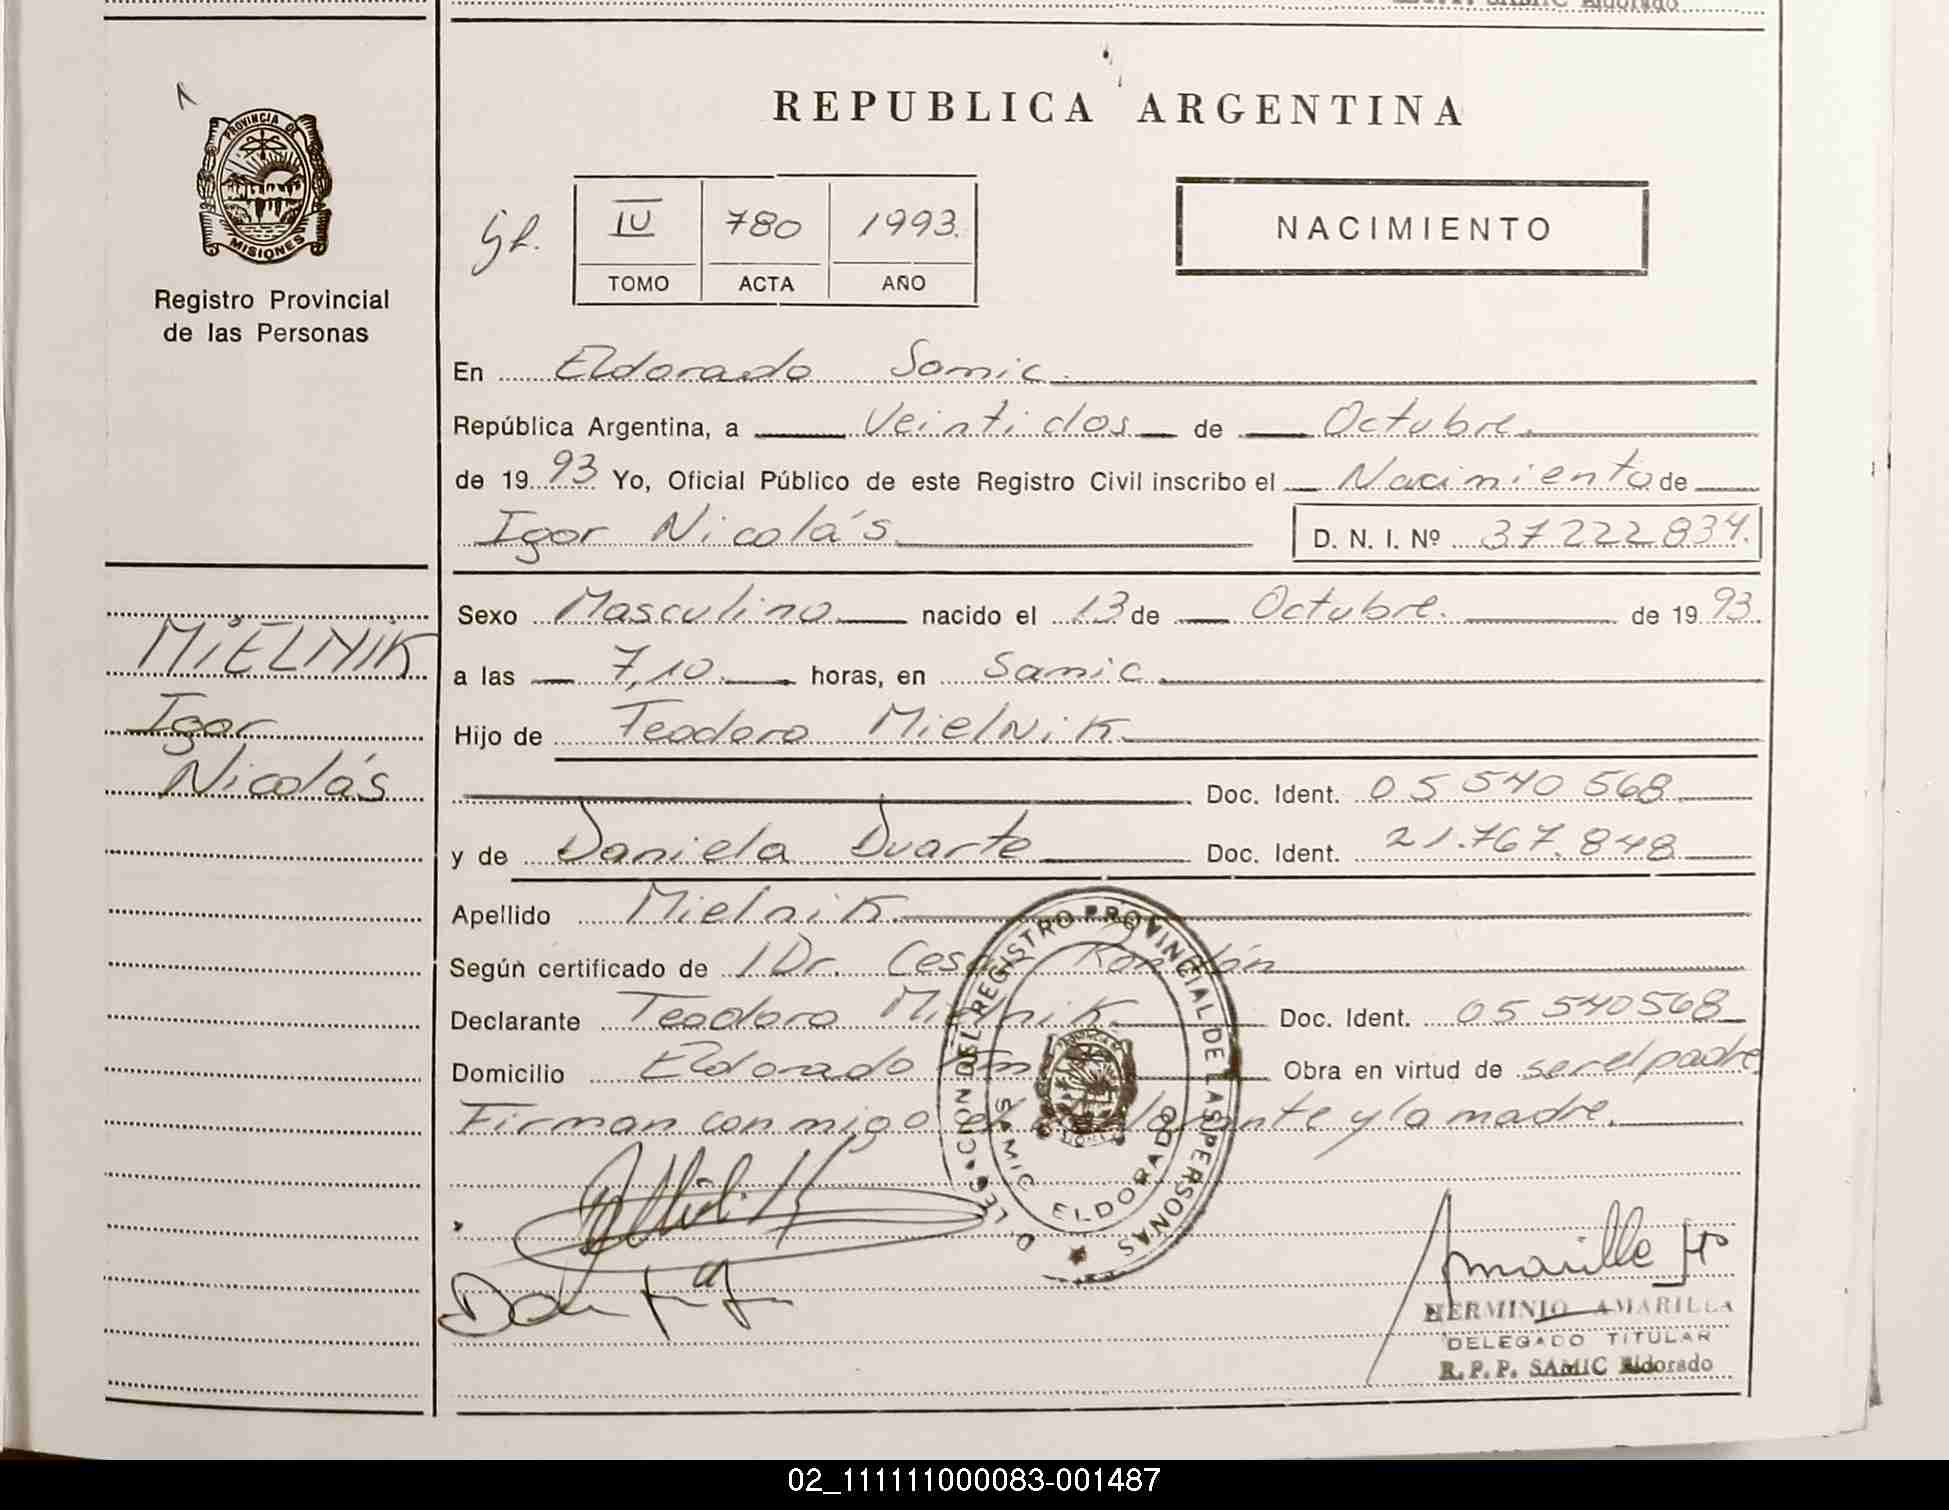 REPUBLICA ARGENTINA
PROVINCIA DE
MISIONES
Registro Provincial
de las Personas
IV 780 1993.
TOMO ACTA AÑO
NACIMIENTO
En Eldorado Samic
República Argentina, a Veintidos de Octubre.
de 1993 Yo, Oficial Público de este Registro Civil inscribo el Nacimiento de
Igor Nicolás D. N. I. Nº 37222834.
Sexo Masculino nacido el 13 de Octubre. de 1993.
a las 7,10 horas, en Samic
Hijo de Teodoro Mielnik
Doc. Ident. 05 540 568
y de Daniela Duarte Doc. Ident. 21.767.848
Apellido Mielnik
Según certificado de 1 Dr. Cesar
Declarante Teodoro Mielnik Doc. Ident. 05 540568
Domicilio Eldorado Obra en virtud de ser el padre.
Firman conmigo el declarante y la madre.
MiELNIK
Igor
Nicolás
DEL REGISTRO PROVINCIAL DE LAS PERSONAS
SAMIC ELDORADO
HERMINIO AMARILLA
DELEGADO TITULAR
R.P.P. SAMIC Eldorado
02_111111000083-001487